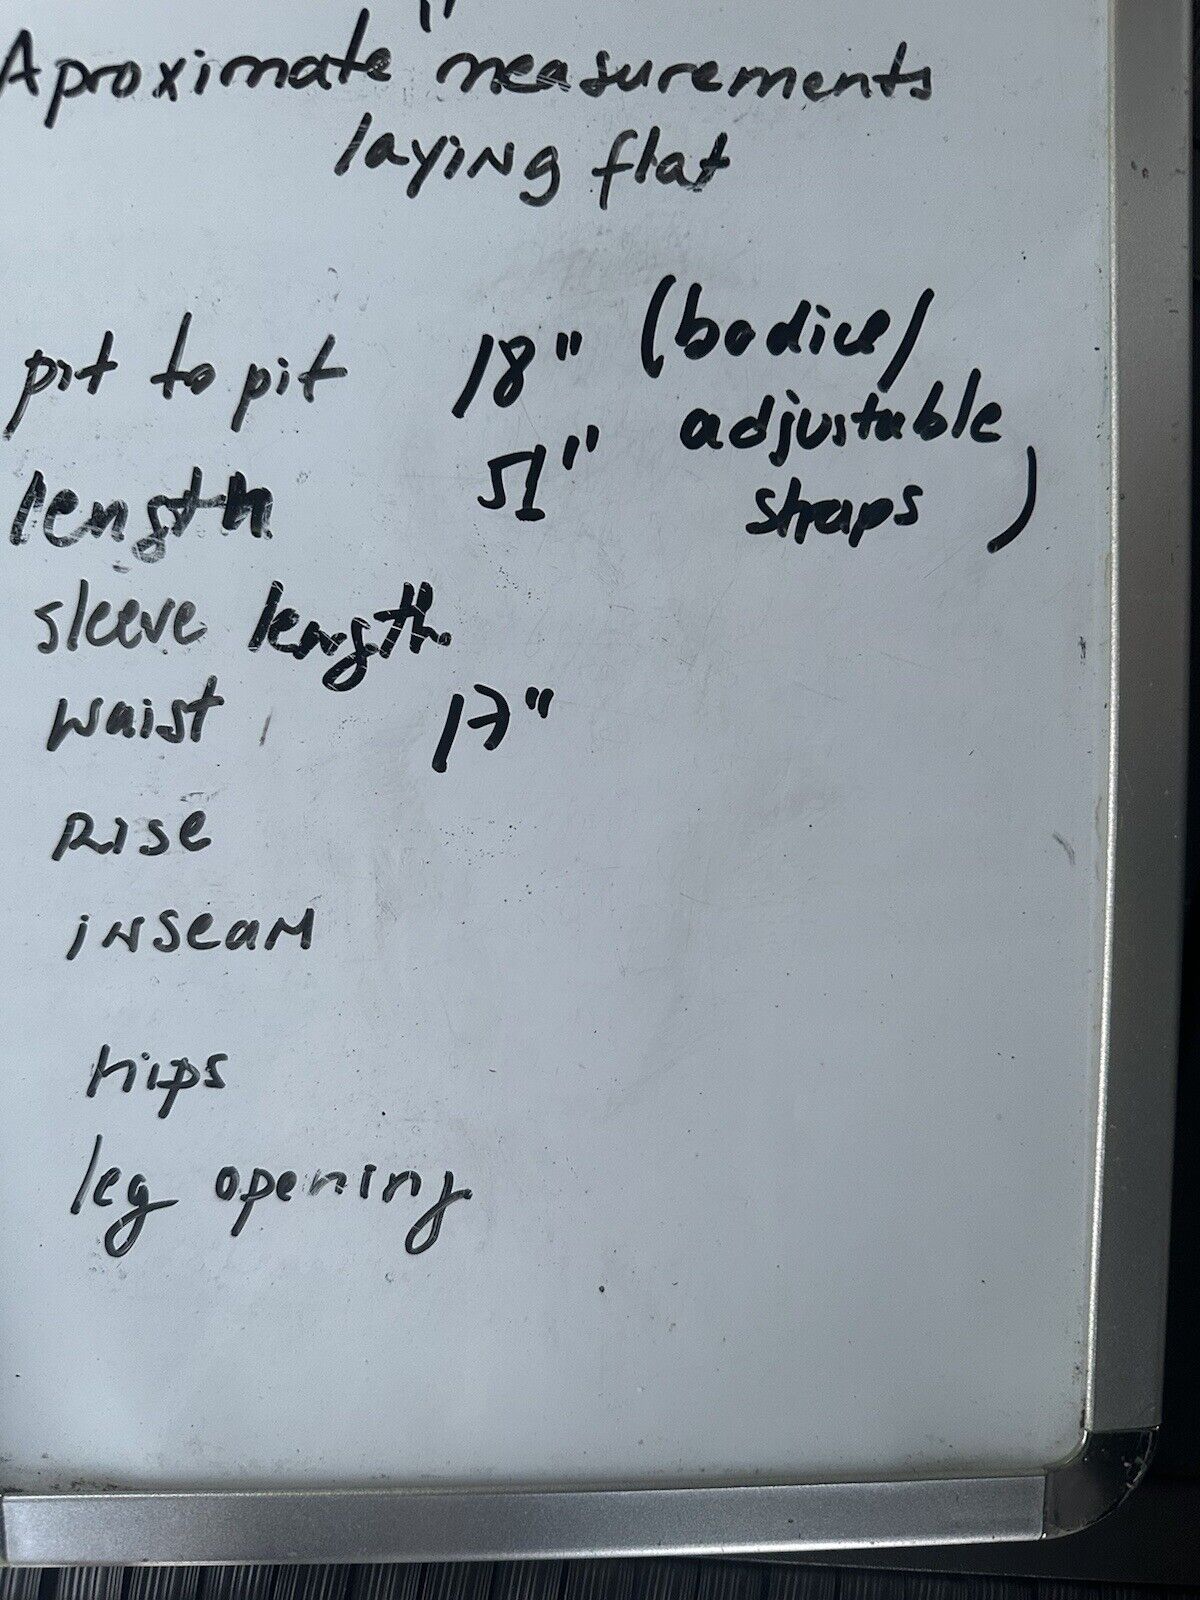 Aproximate measurements
laying flat
pit to pit 18" (bodice/
adjustable
length 51" straps)
sleeve length
waist 17"
Rise
inseam
hips
leg opening